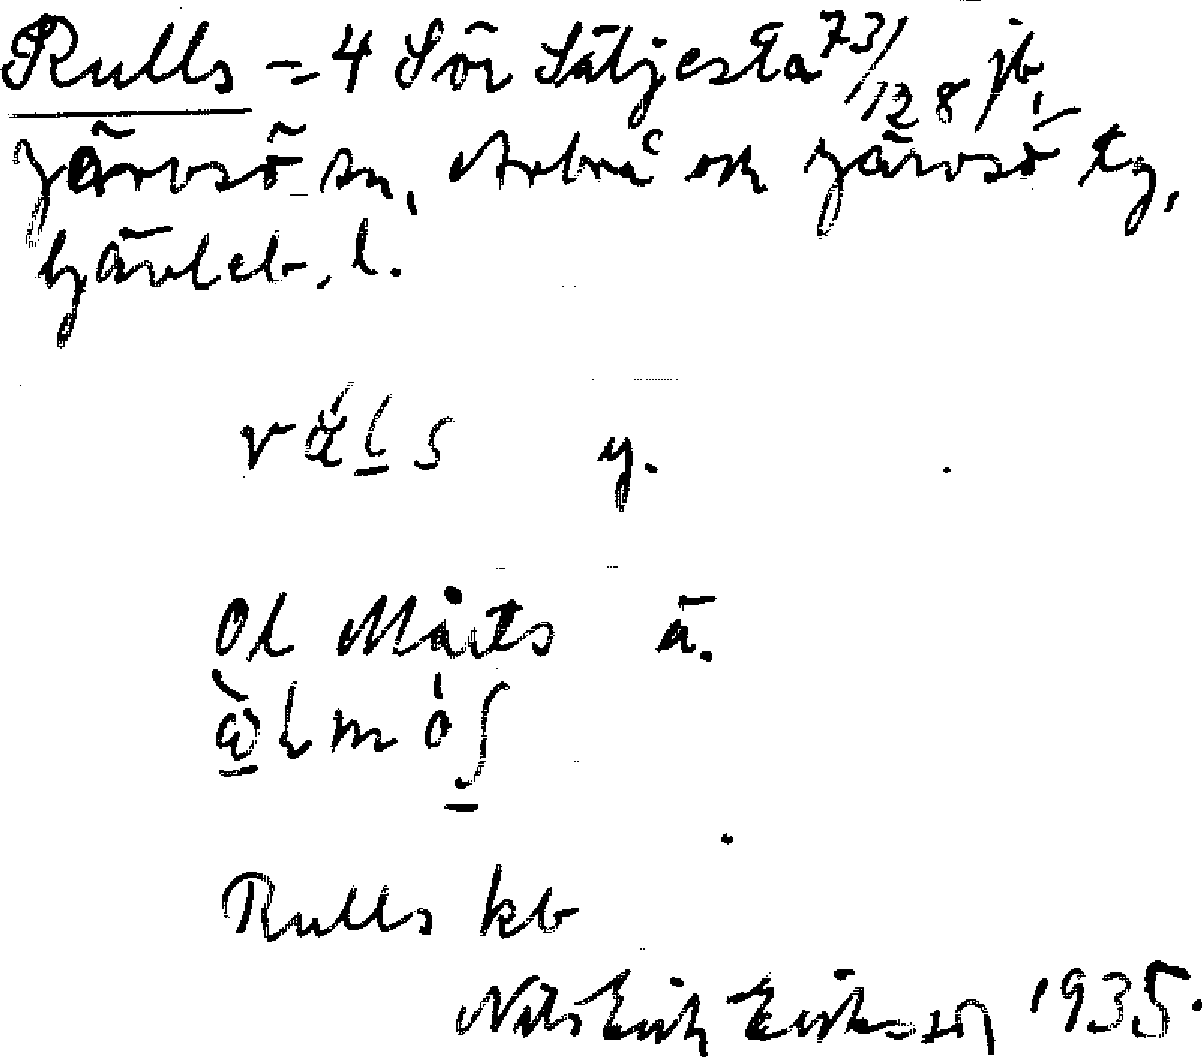 Rulls = 4 Sör Säljesta 73/128 jb,
Järvsö sn, Arbrå och Järvsö tg,
Gävleb. l.
y.
Ol Mårts ä.
Rulls kb
Nils Erik Eriksson 1935.